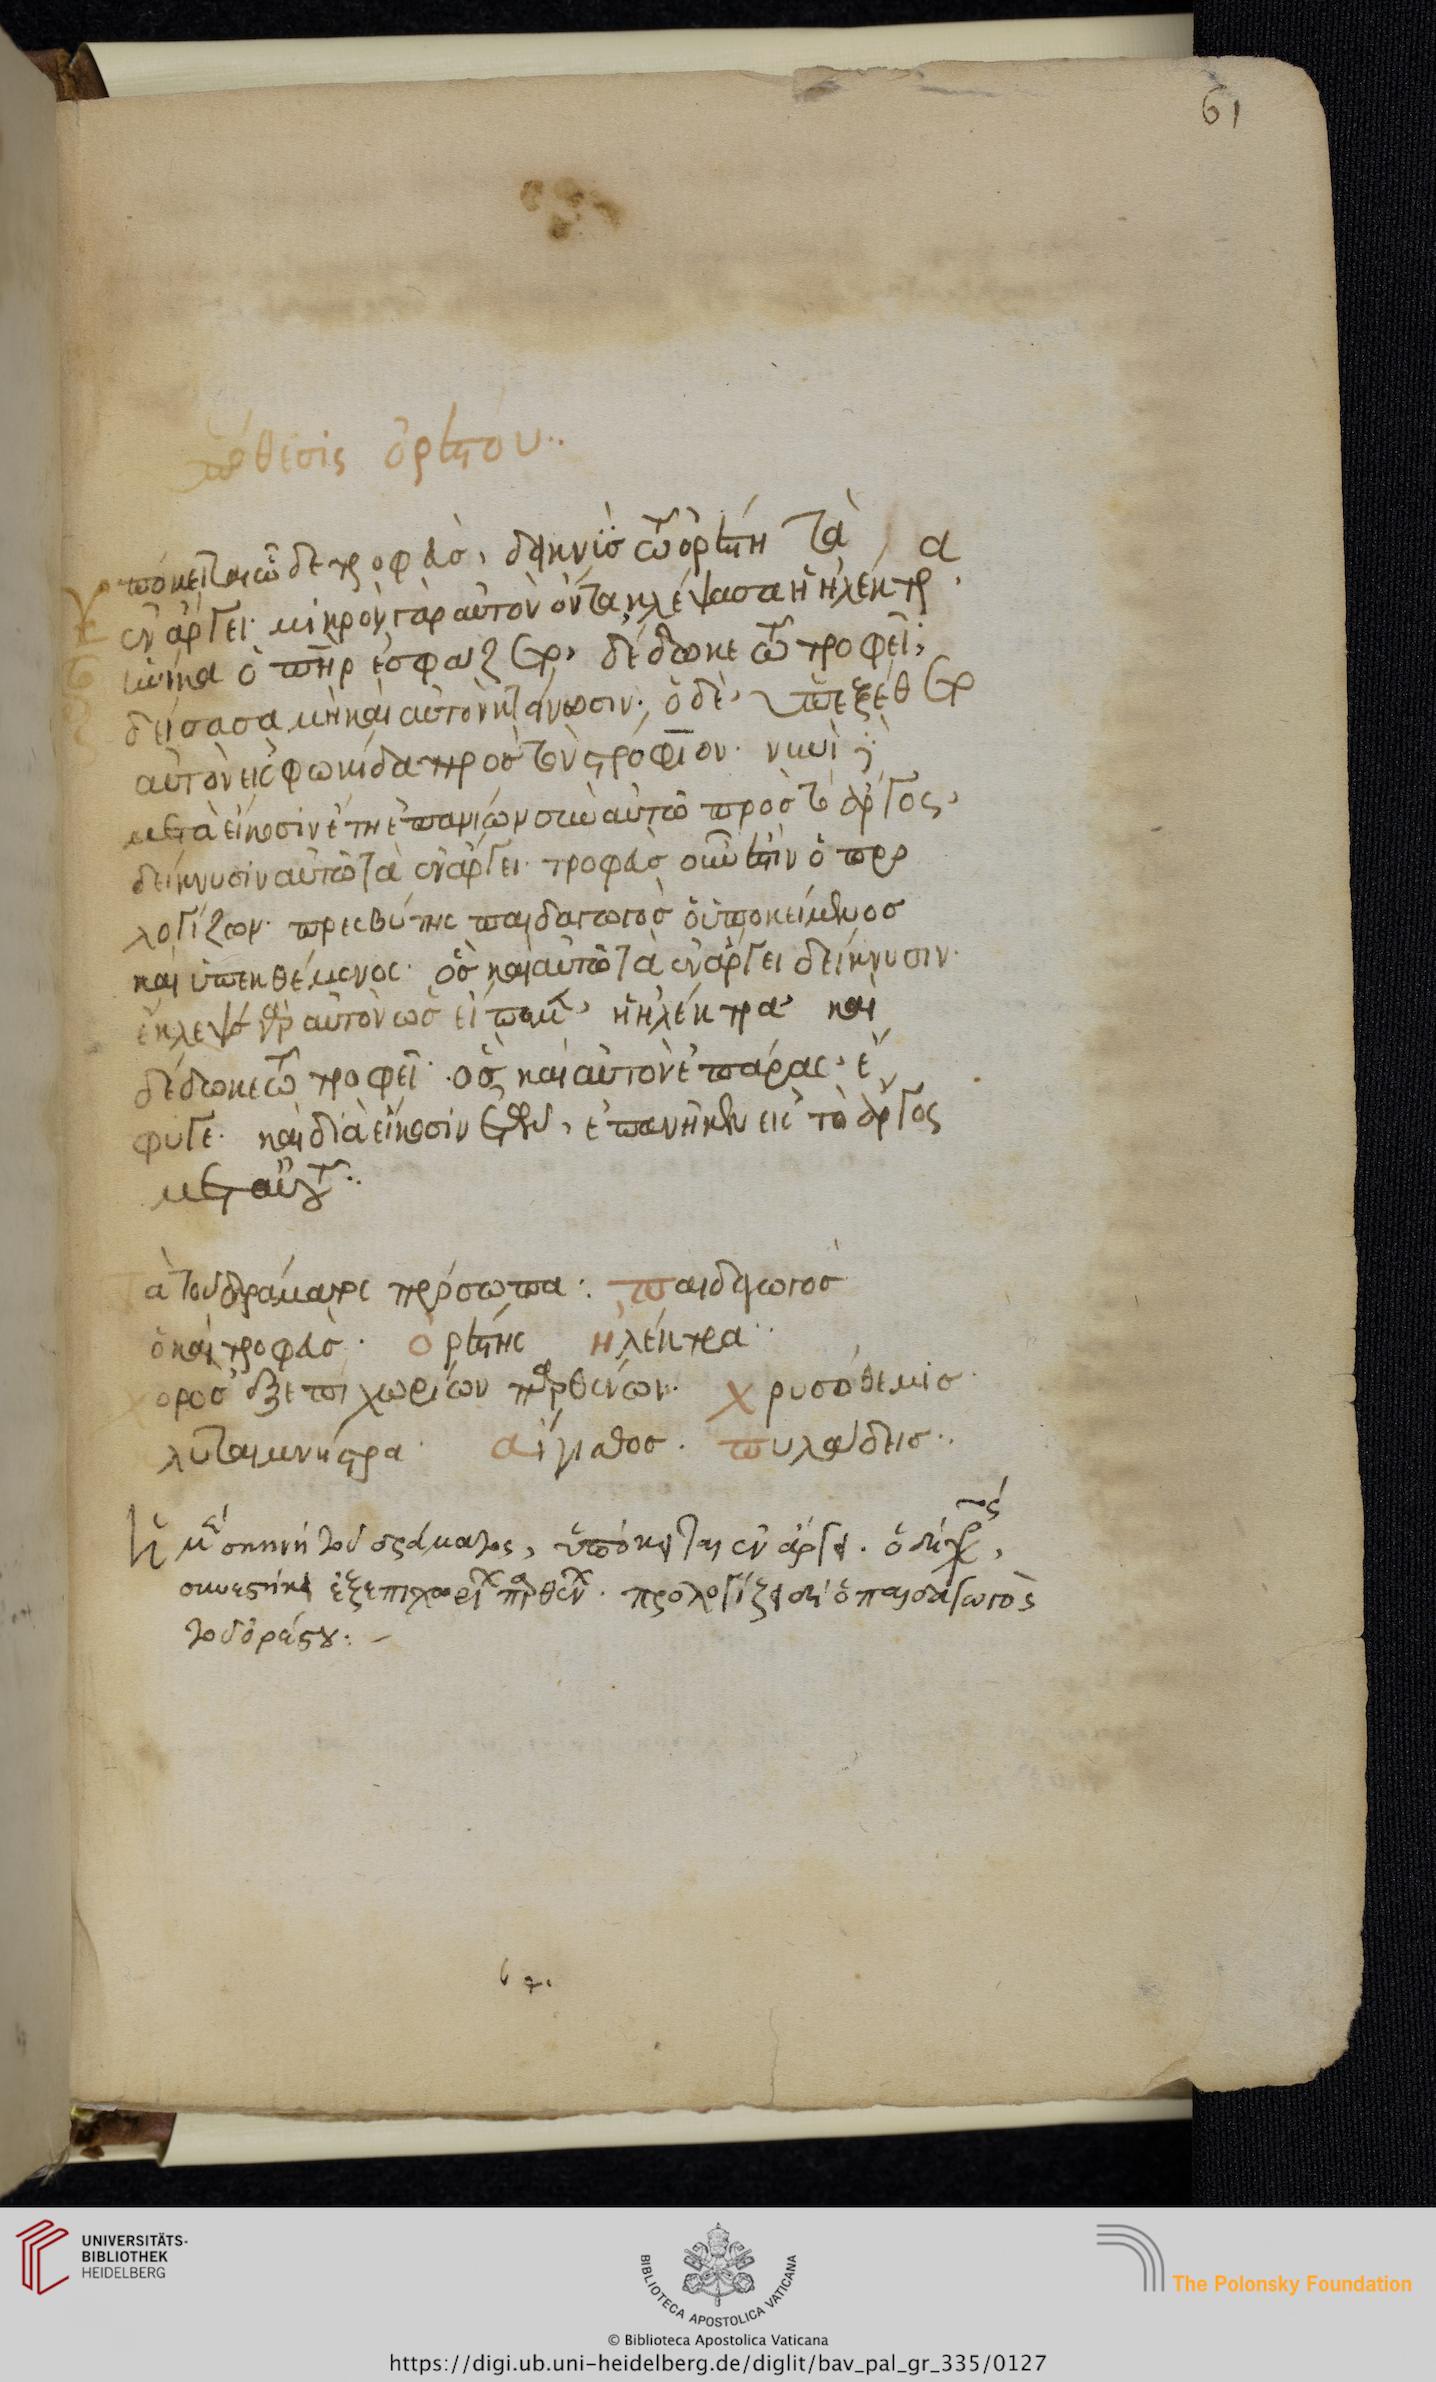 61
ὑπόθεσις ὀρέστου
ὑπόκειται ὧδε τροφεὺς, δεικνὺς τῷ ὀρέστῃ τὰ
ἐν ἄργει· μικρὸν γὰρ αὐτὸν ὄντα κλέψασα ἡ ἠλέκτρα,
ἡνίκα ὁ πατὴρ ἐσφάζετο, δέδωκε τῷ τροφεῖ,
δείσασα μὴ καὶ αὐτὸν κτάνωσιν· ὁ δὲ, ὑπεξέθετο
αὐτὸν εἰς φωκίδα πρὸς τὸν στρόφιον· νυνὶ δὲ
μετὰ εἴκοσιν ἔτη ἐπανιὼν σὺν αὐτῷ πρὸς τὸ ἄργος,
δείκνυσιν αὐτῷ τὰ ἐν ἄργει· τροφεὺς οὖν ἐστὶν ὁ προ
λογίζων· πρεσβύτης παιδαγωγὸς ὁ ὑποκείμενος
καὶ ὑπεκθέμενος· ὃς καὶ αὐτῷ τὰ ἐν ἄργει δείκνυσιν·
ἔκλεψε γὰρ αὐτὸν ὡς εἴπομεν, ἡ ἠλέκτρα καὶ
δέδωκε τῷ τροφεῖ· ὃς καὶ αὐτὸν ἐπάρας, ἔ
φυγε· καὶ διὰ εἴκοσιν ἐτῶν, ἐπανῆκεν εἰς τὸ ἄργος
μετ' αὐτοῦ:
τὰ τοῦ δράματος πρόσωπα: παιδαγωγὸς
ὁ καὶ τροφεὺς· ὀρέστης ἠλέκτρα
χορὸς ἐξ ἐπιχωρίων παρθένων· χρυσόθεμις
λυταιμνήστρα· αἴγισθος· πυλάδης
ἡ μὲν σκηνὴ τοῦ δράματος, ὑπόκειται ἐν ἄργει· ὁ δὲ χορὸς,
συνέστηκεν ἐξ ἐπιχωρίων παρθένων· προλογίζει δὲ ὁ παιδαγωγὸς
τοῦ ὀρέστου:
UNIVERSITÄTS-
BIBLIOTHEK
HEIDELBERG
BIBLIOTECA APOSTOLICA VATICANA
The Polonsky Foundation
© Biblioteca Apostolica Vaticana
https://digi.ub.uni-heidelberg.de/diglit/bav_pal_gr_335/0127